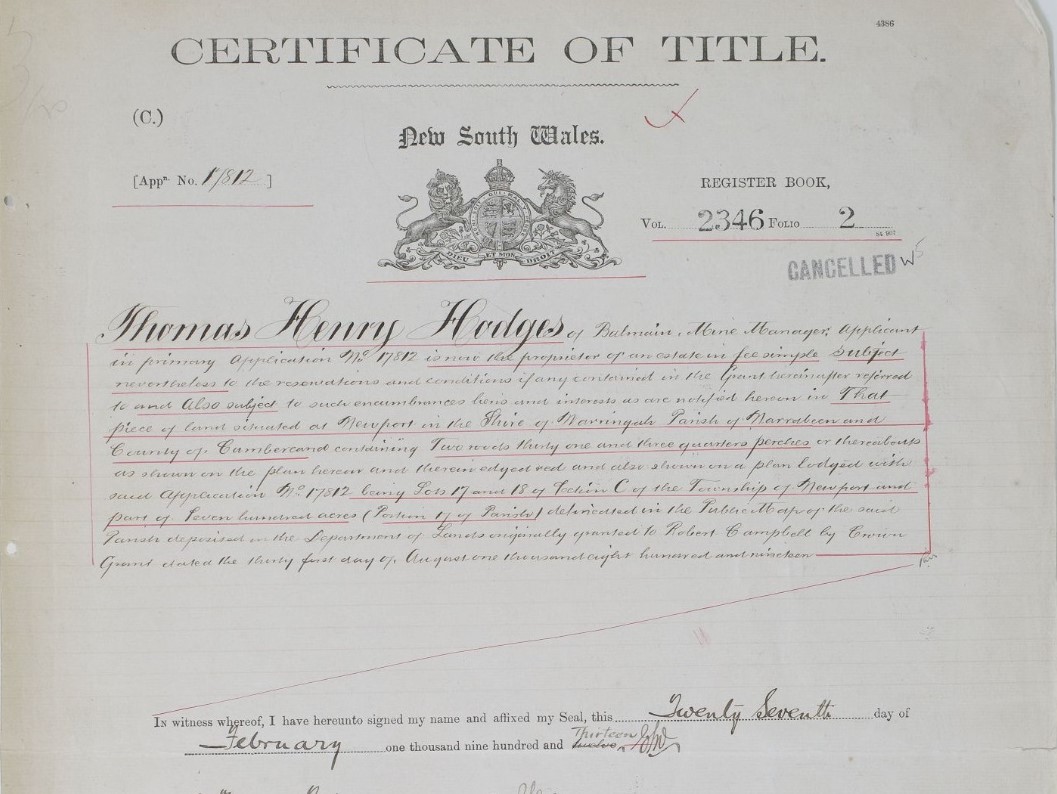 4386
CERTIFICATE OF TITLE.
(C.)
New South Wales.
[Appn. No. 17812 ]
REGISTER BOOK,
VOL. 2346 FOLIO 2
DIEU ET MON DROIT
CANCELLED
Thomas Henry Hodges of Balmain, Mine Manager, Applicant
in primary Application No. 17812 is now the proprietor of an estate in fee simple Subject
nevertheless to the reservations and conditions if any contained in the Grant hereinafter referred
to and Also subject to such encumbrances liens and interests as are notified hereon in That
piece of land situated at Newport in the Shire of Warringah Parish of Narrabeen and
County of Cumberland containing Two roods thirty one and three quarters perches or thereabouts
as shown on the plan hereon and therein edged red and also shown on a plan lodged with
said Application No. 17812 being Lots 17 and 18 of Section C of the Township of Newport and
part of Seven hundred acres (Portion 17 of Parish) delineated in the Public Map of the said
Parish deposited in the Department of Lands originally granted to Robert Campbell by Crown
Grant dated the thirty first day of August one thousand eight hundred and nineteen
IN witness whereof, I have hereunto signed my name and affixed my Seal, this Twenty Seventh day of
February one thousand nine hundred and Thirteen twelve